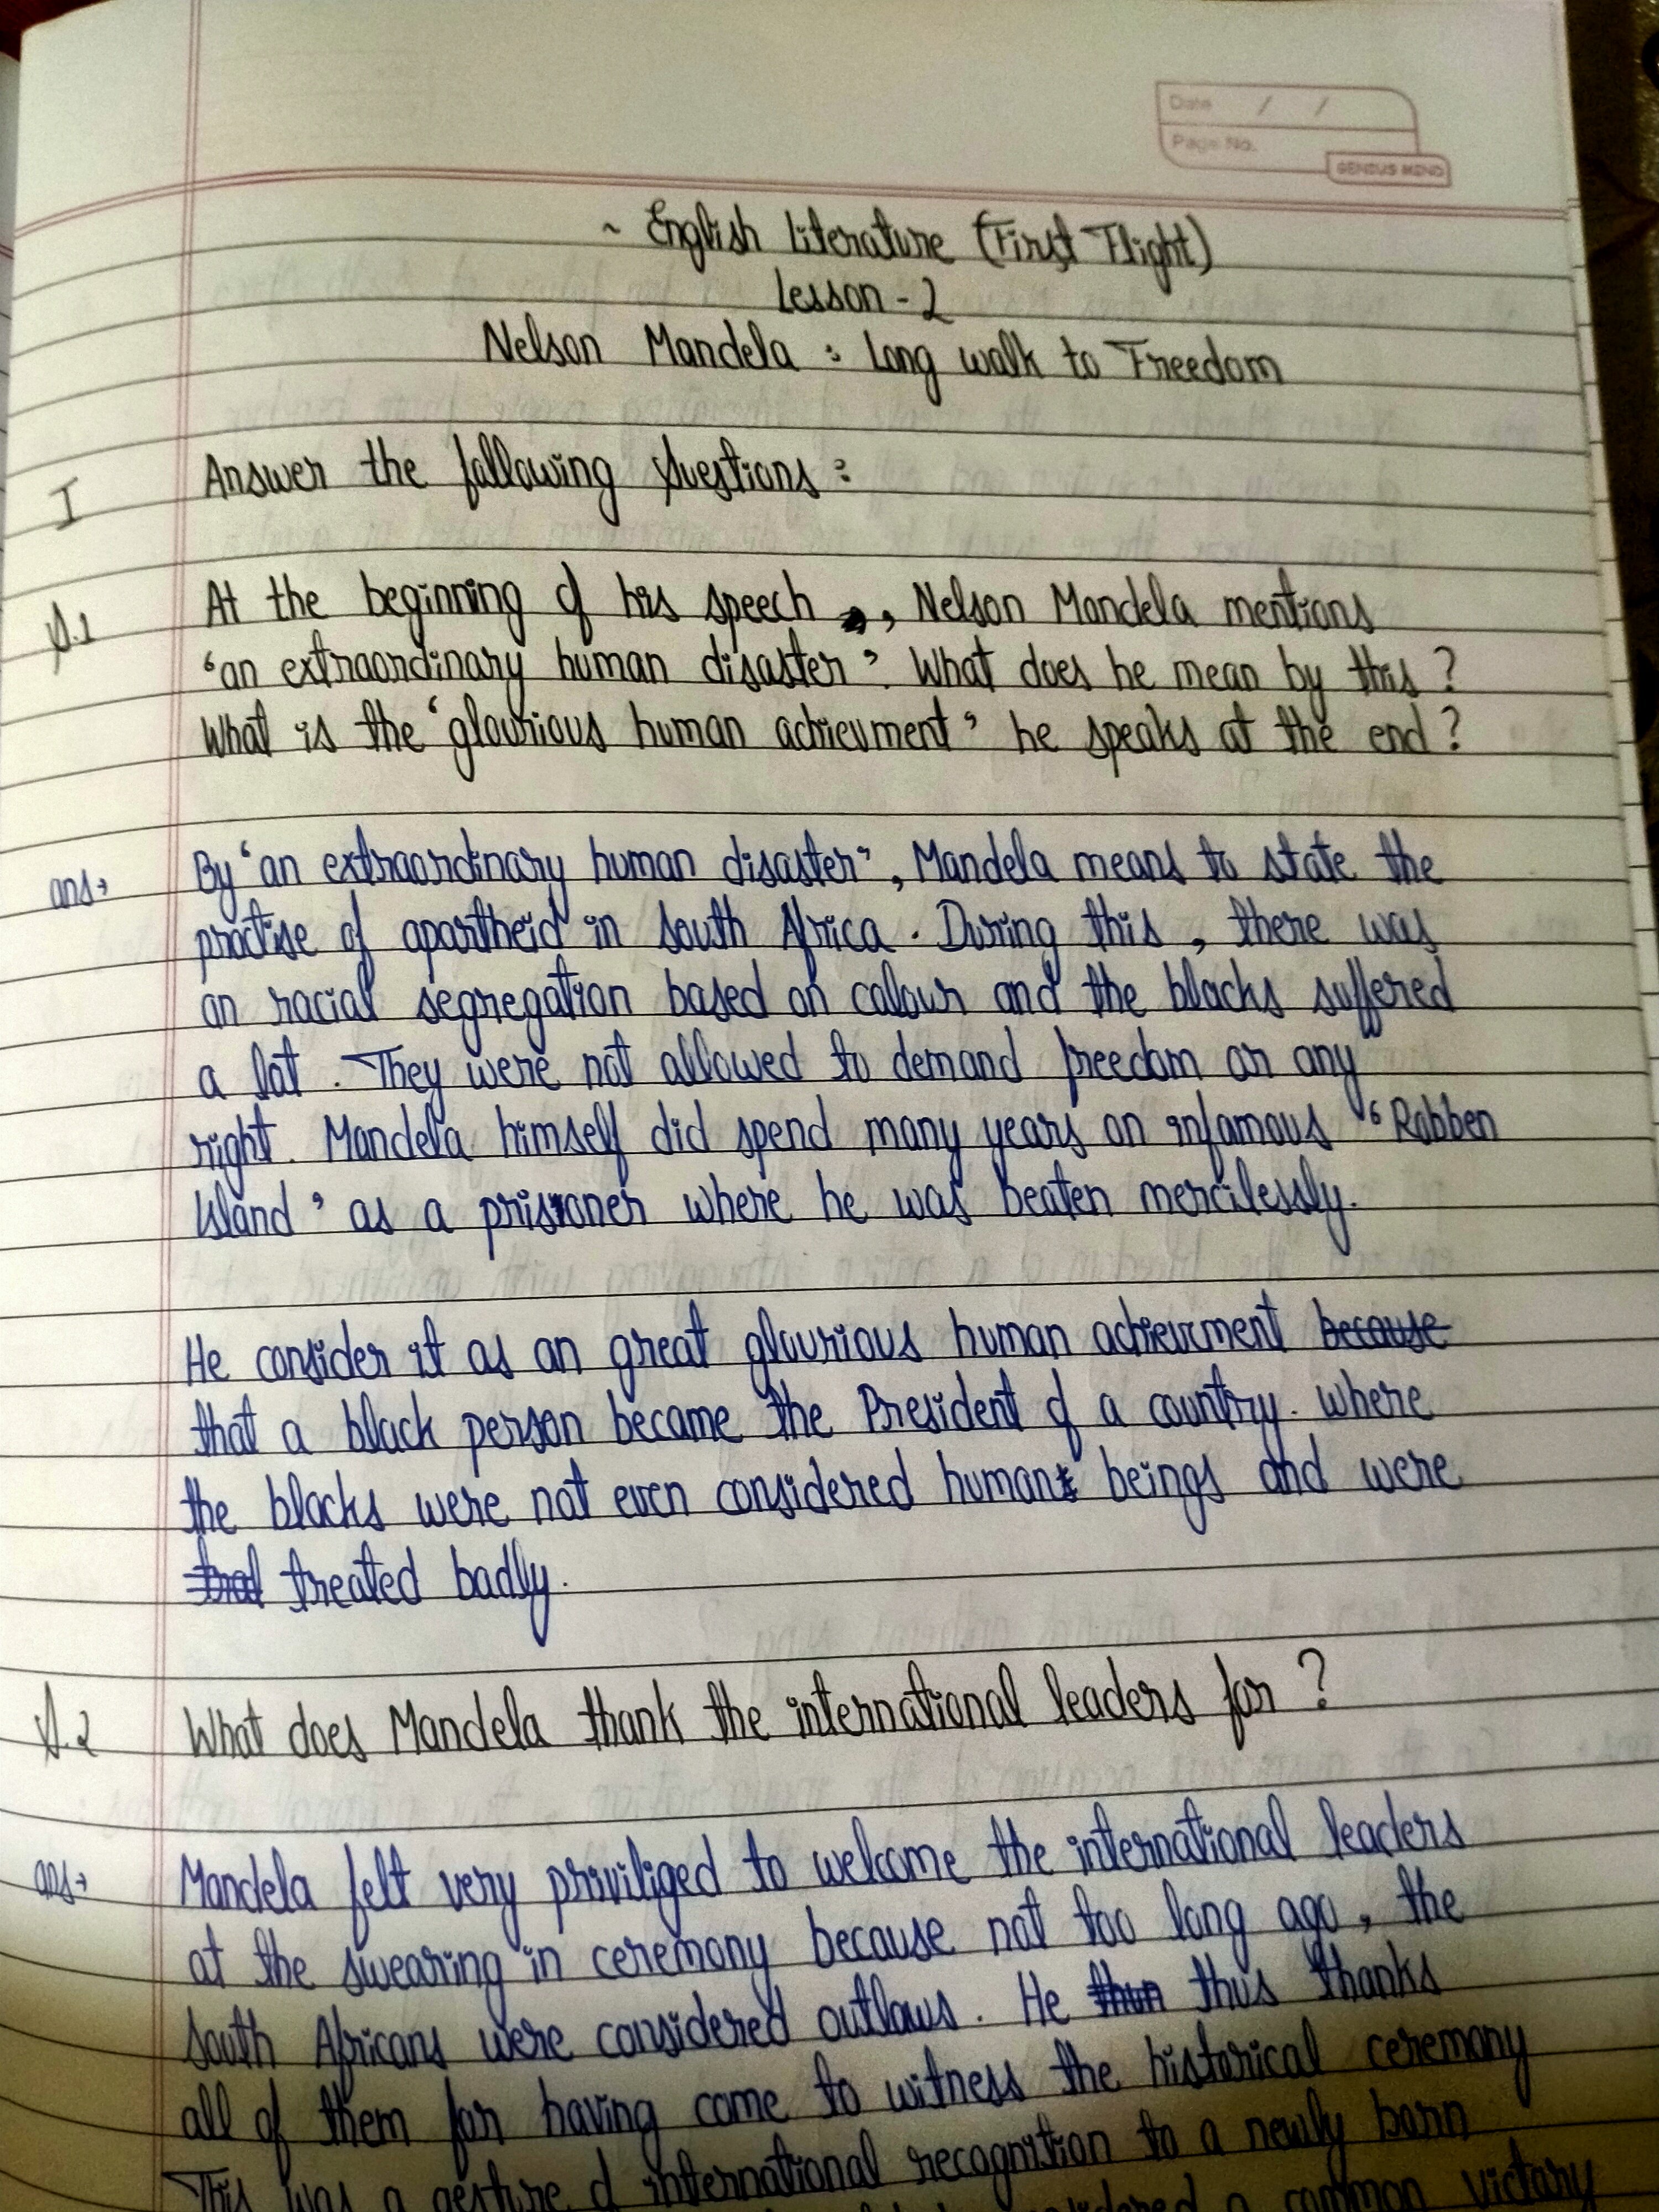 Date / /
Page No.
GENIUS MIND
~ English Literature (First Flight)
Lesson - 2
Nelson Mandela : Long walk to Freedom
I Answer the following Questions :
Q.1 At the beginning of his speech , Nelson Mandela mentions
'an extraordinary human disaster'. What does he mean by this ?
What is the 'glourious human achievment' he speaks at the end ?
ans→ By 'an extraordinary human disaster', Mandela means to state the
practise of apartheid in South Africa . During this , there was
an racial segregation based on colour and the blacks suffered
a lot . They were not allowed to demand freedom or any
right. Mandela himself did spend many years on infamous 'Robben
Island' as a prisoner where he was beaten mercilessly.
He consider it as an great glourious human achievment because
that a black person became the President of a country. where
the blacks were not even considered human beings and were
treated badly.
Q.2 What does Mandela thank the international leaders for ?
ans→ Mandela felt very priviliged to welcome the international leaders
at the swearing in ceremony because not too long ago , the
South Africans were considered outlaws . He thus thanks
all of them for having come to witness the historical ceremony
This was a gesture of international recognition to a newly born
a common victory